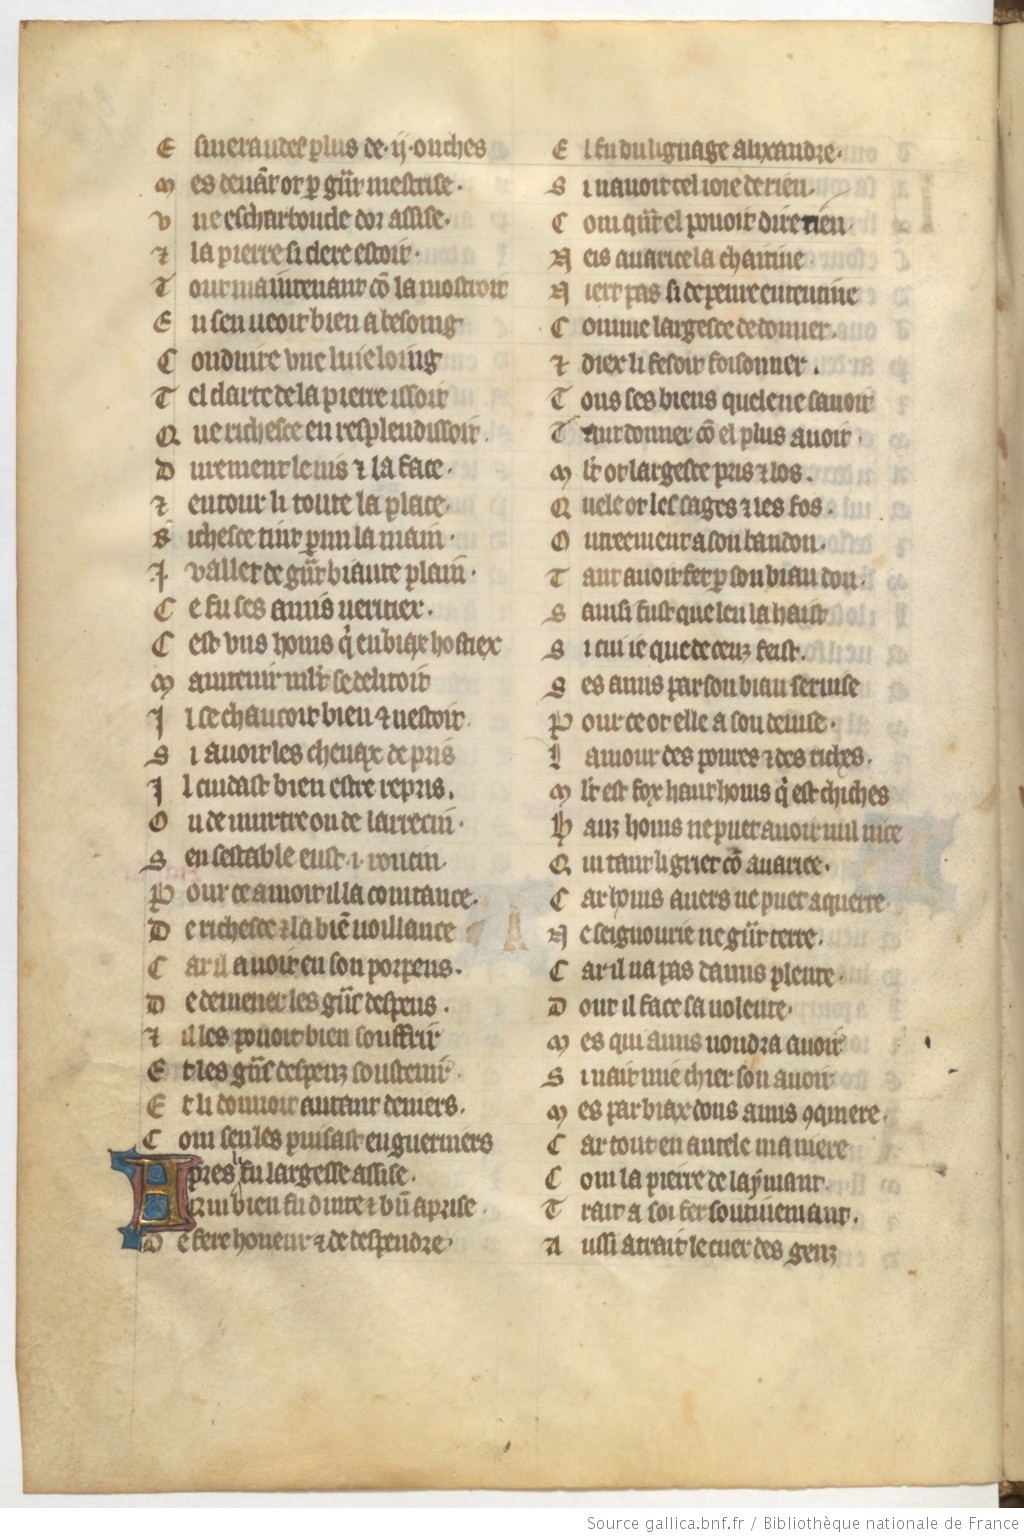 E sineraudes plus de .ij. onches
M es deuāt or ꝑ gūt mestrise.
V ne escharboucle dor assise.
⁊ la pierre si clere estoit.
T out maintenant cō la mostroit
E n sen ueoit bien a besoing
C onduire vne liuie loing
T el clarte de la pierre issoit
Q ue richesce en resplendissoit.
D urement le uis ⁊ la face.
⁊ entour li toute la place.
R ichesce tint ꝑmi la main.
J vallet de gūt biaute plain.
C e fu ses amis ueritiex.
C est vns homs q̄ en biax hostiex
M aintenir mlt̄ se delitoit
J l se chaucoit bien ⁊ uestoit.
S i auoit les cheuax de pris
J l cuidast bien estre repris.
O u de murtre ou de larrecin.
S en sestable eust .i. roncin.
P our ce amoit il la cointance.
D e richesce ⁊ la biē uoillance
C ar il auoit en son porpens.
D e demener les gūs despens.
⁊ il les pouoit bien souffrir
E t les gūs despenz soustenir.
E t li donnoit autant deniers.
C om seules puisast en guerniers
A pres fu largesse assise.
Q ui bien fu duite ⁊ bn̄ aprise.
D e fere honeur ⁊ de despendre.
E l fu du lignage alixandre.
S i nauoit tel ioie de rien.
C om qn̄t el pouoit dire tien.
N eis auarice la chaitiue
N iert pas si de penre ententiue
C omme largesce de donner.
⁊ diex li fesoit foisonner.
T ous ses biens quele ne sauoit
T ant donner cō el plus auoit.
M lt̄ or largesce pris ⁊ los.
Q uele or les sages ⁊ les fos.
O utreement a son bandon.
T ant auoit fet ꝑ son biau don.
S ainsi fust que len la haist
S i cui ie que de ceuz feist.
S es amis par son biau seruise
P our ce or elle a son deuise.
L amour des poures ⁊ des riches.
M lt̄ est fox haut homs q̄ est chiches
H auz homs ne puet auoir nul uice
Q ui tant li griet cō auarice.
C ar homs auers ne puet aquerre
N e seignourie ne gūt terre.
C ar il na pas damis plente.
D ont il face sa uolente.
M es qui amis uoudra auoir
S i nait mie chier son auoir
M es par biax dons amis ꝯquiere.
C ar tout en autele maniere
C om la pierre de laÿmant.
T rait a soi fer soutiuement.
A ussi atrait le cuer des genz
Source gallica.bnf.fr / Bibliothèque nationale de France